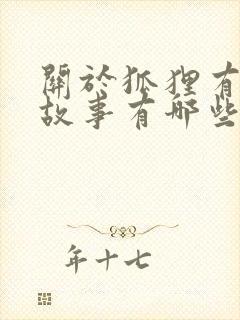 關於狐狸有
故事有哪些
年十七